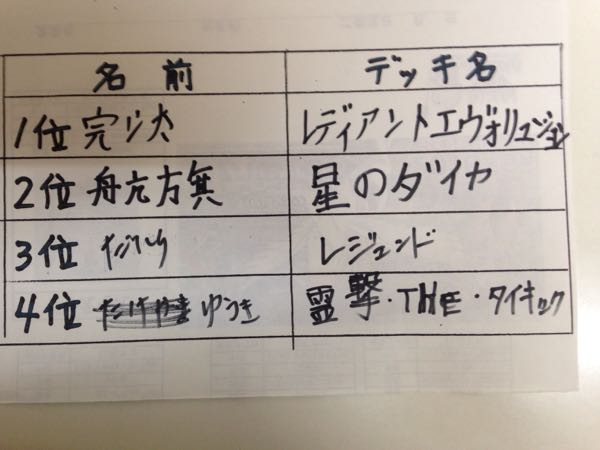 名前 デッキ名
1位 レディアントエヴォリュション
2位 星のダイヤ
3位 レジェンド
4位 ゆうき 霊撃・THE・タイキック